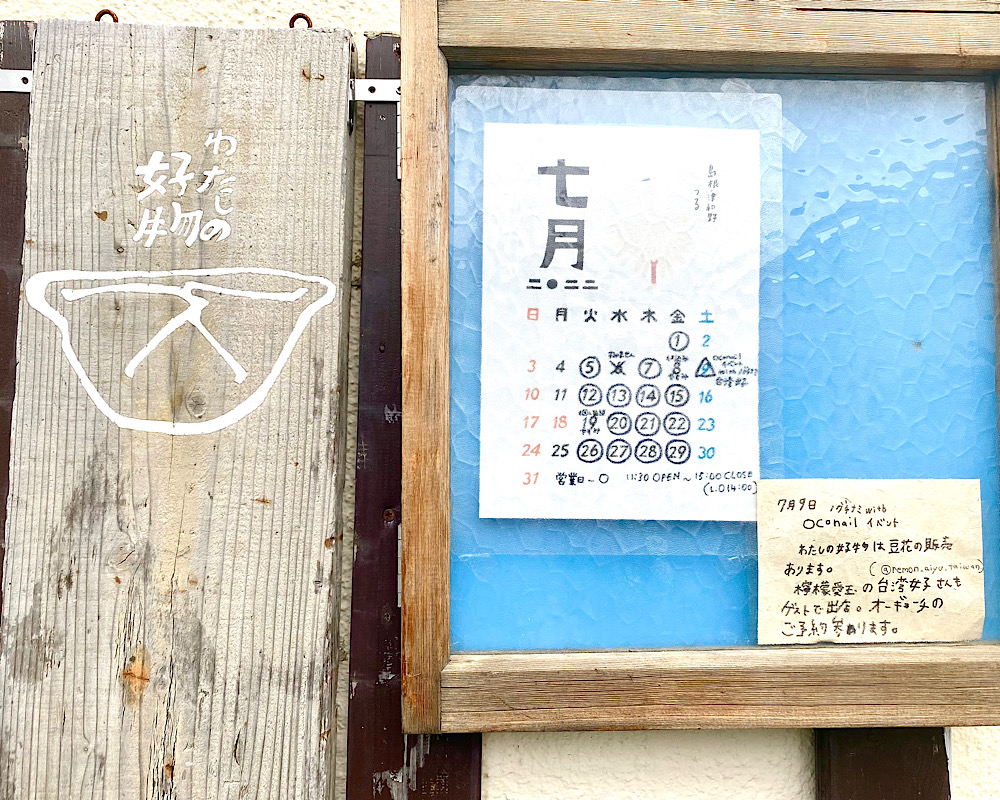 わたしの
好物
七月
二〇二二
島根津和野
つる
日 月 火 水 木 金 土
1 2
3 4 5 6 7 8 9
oconail
イベント
with
台湾女子
10 11 12 13 14 15 16
17 18 19 20 21 22 23
24 25 26 27 28 29 30
31 営業日→○ 11:30 OPEN~15:00 CLOSE
(L.O 14:00)
7月9日 ノグチナミ with
OConail イベント
わたしの好物は豆花の販売
あります。 (@remon.aiyu.taiwan)
檸檬愛玉の台湾女子さんも
ゲストで出店。オーギョーチの
ご予約参ります。